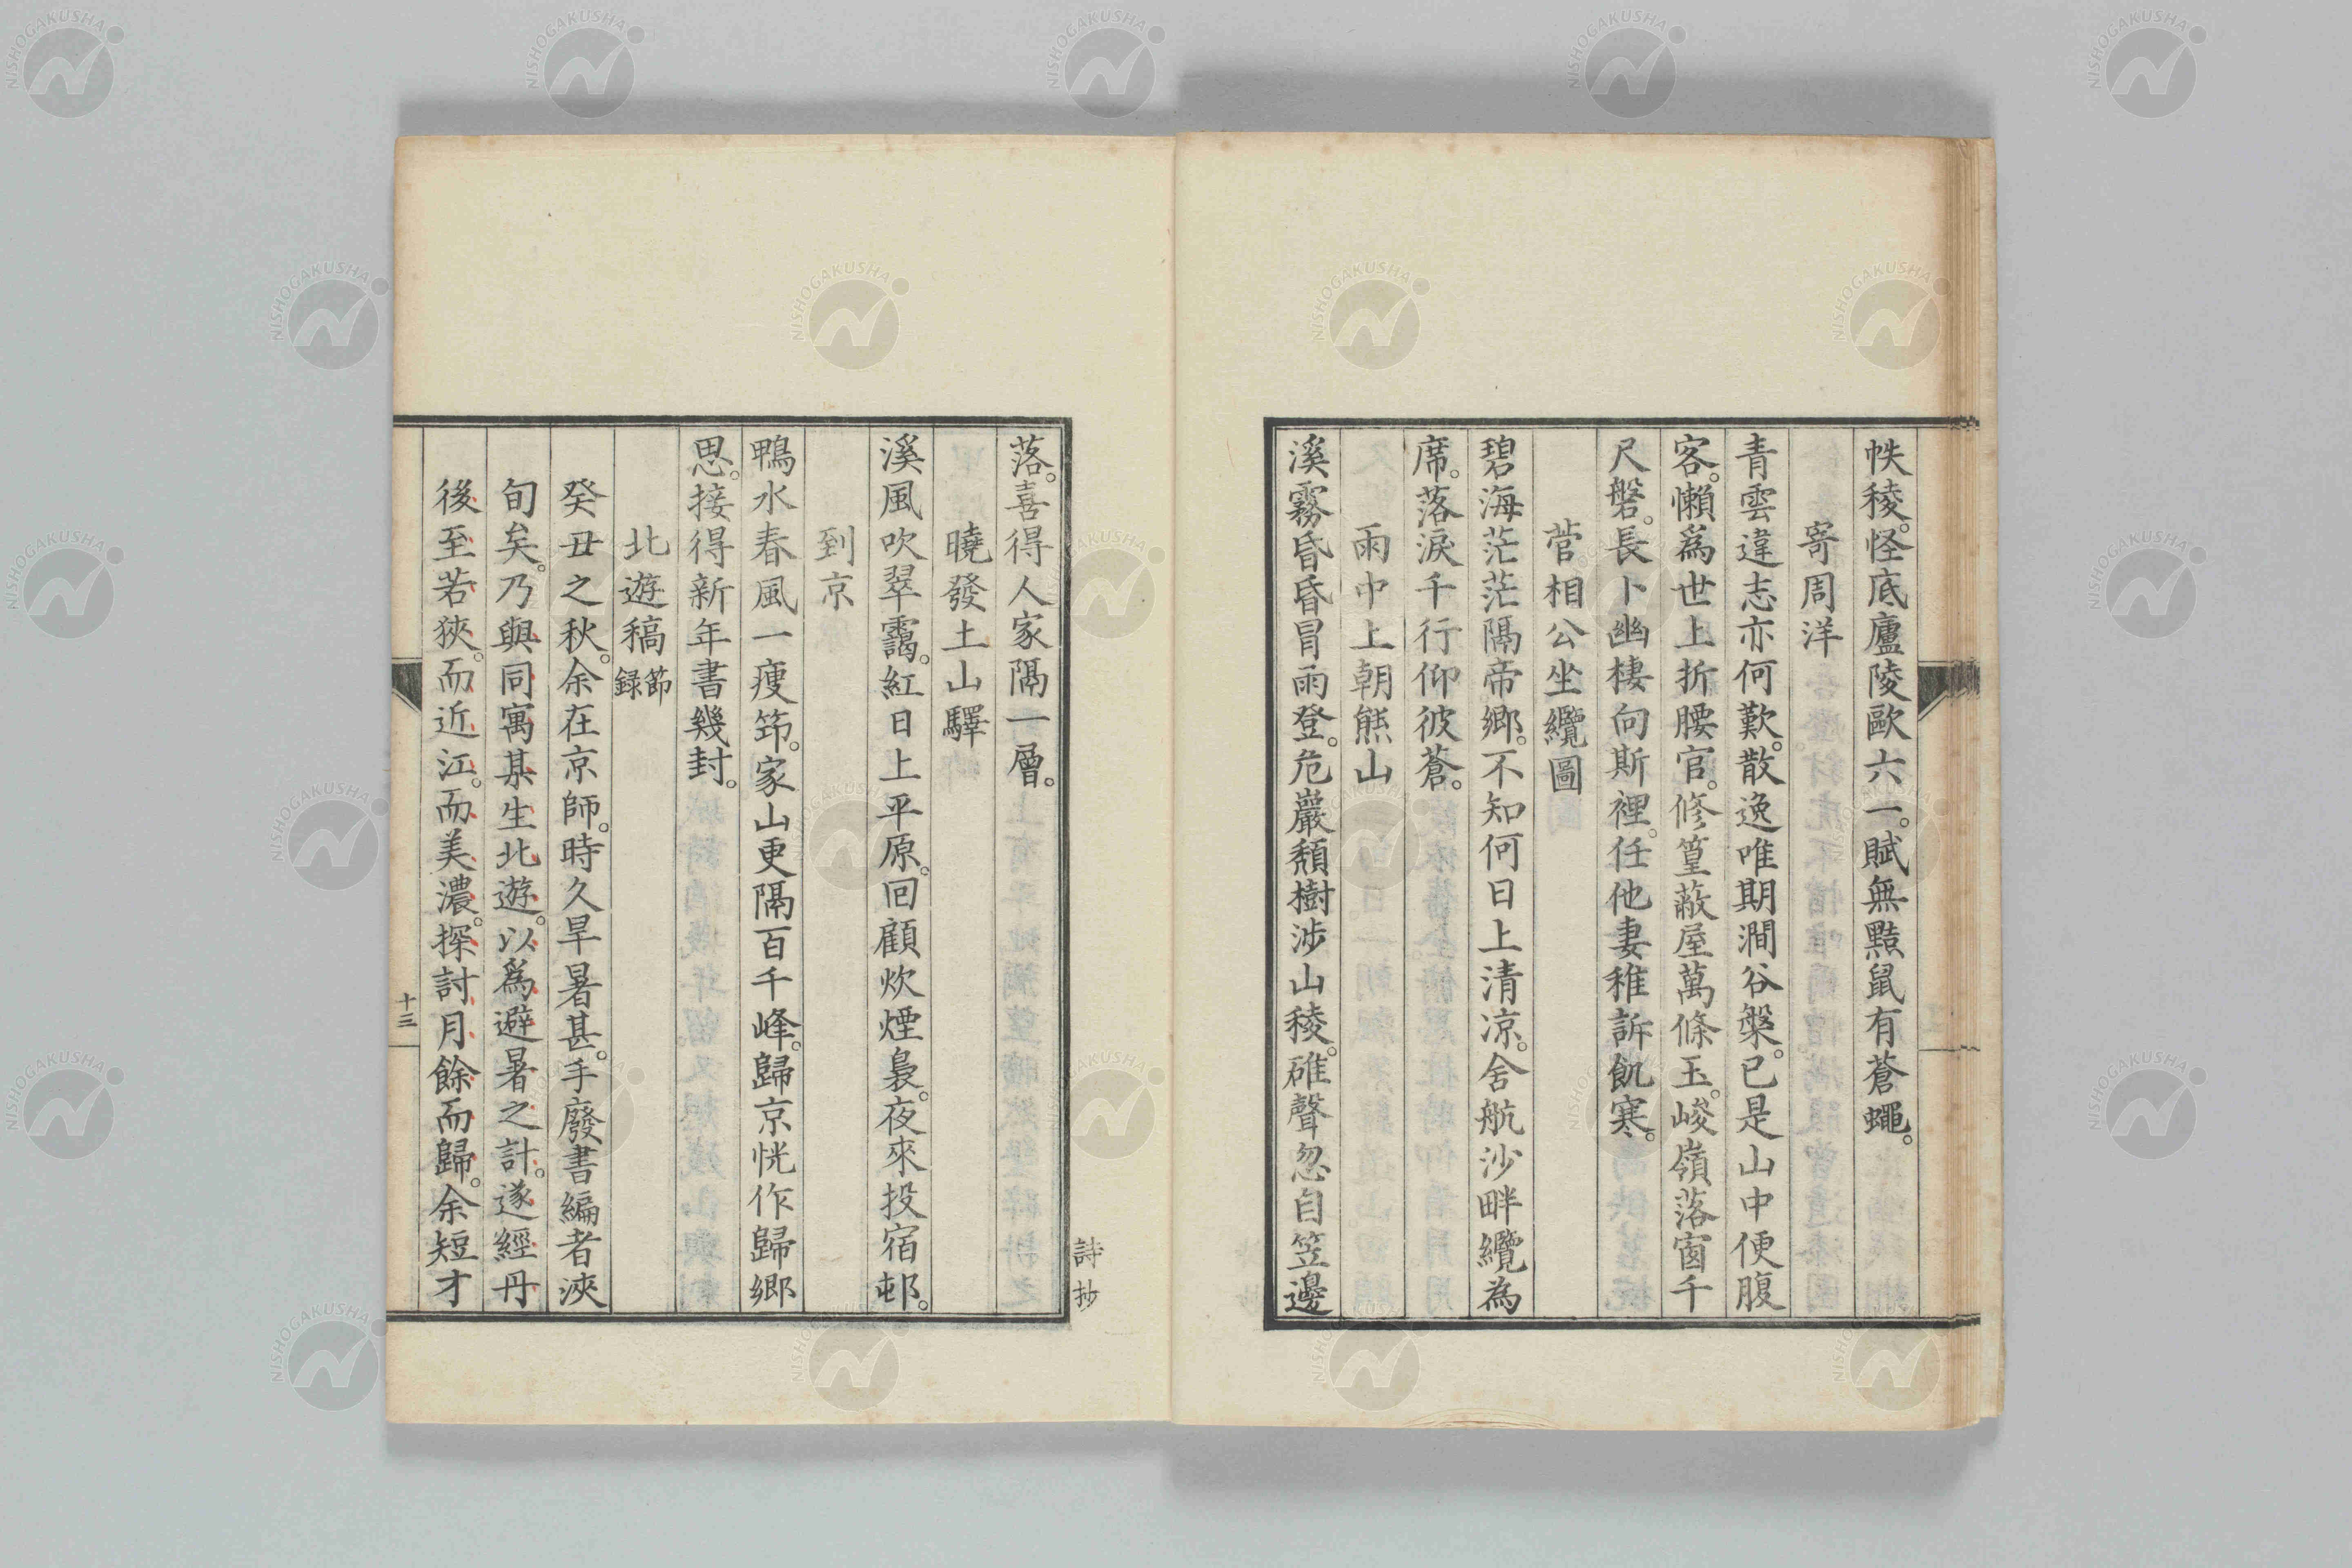 帙稜。怪底廬陵歐六一。賦無㸃鼠有蒼蠅。
寄周洋
青雲違志亦何歎。散逸唯期澗谷槃。已是山中便腹
客。懶爲世上折腰官。修篁蔽屋萬條玉。峻嶺落窗千
尺磐。長卜幽棲向斯裡。任他妻稚訴飢寒。
菅相公坐纜圖
碧海茫茫隔帝鄉。不知何日上清涼。舍航沙畔纜為
席。落淚千行仰彼蒼。
雨中上朝熊山
溪霧昏昏冒雨登。危巖頹樹涉山稜。碓聲忽自笠邊
落。喜得人家隔一層。
曉發土山驛
溪風吹翠靄。紅日上平原。回顧炊煙裊。夜來投宿邨。
到京
鴨水春風一瘦筇。家山更隔百千峰。歸京恍作歸鄉
思。接得新年書幾封。
北遊稿節錄
癸丑之秋。余在京師。時久旱暑甚。手廢書編者浹
旬矣。乃與同寓某生北遊。以爲避暑之計。遂經丹
後至若狹。而近江。而美濃。探討月餘而歸。余短才
詩抄
十三
NISHOGAKUSHA